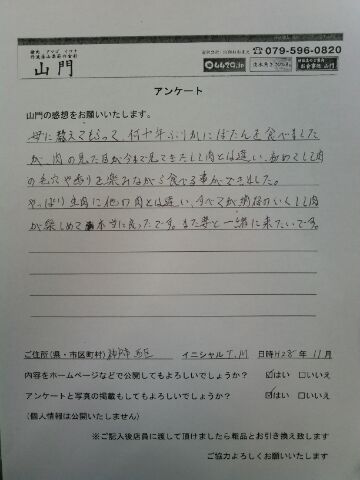 山門
☎079-596-0820
アンケート
山門の感想をお願いいたします。
母に教えてもらって、何十年ぶりかにぼたんを食べました
が、肉の見た目が今まで見てきたしし肉とは違い、初めてしし肉
の毛穴や香りを楽みながら食べる事ができました。
やっぱり生肉に他の肉とは違い、すべてが納得のいくしし肉
が楽しめて本当に良ったです。また妻と一緒に来たいです。
ご住所(県・市区町村) 神戸市 西区 イニシャル T.川 日時 H28 年 11月
内容をホームページなどで公開してもよろしいでしょうか? ☑はい □いいえ
アンケートと写真の掲載もしてもよろしいでしょうか? ☑はい □いいえ
(個人情報は公開いたしません)
※ご記入後店員に渡して頂けましたら粗品とお引き換え致します
ご協力よろしくお願いいたします